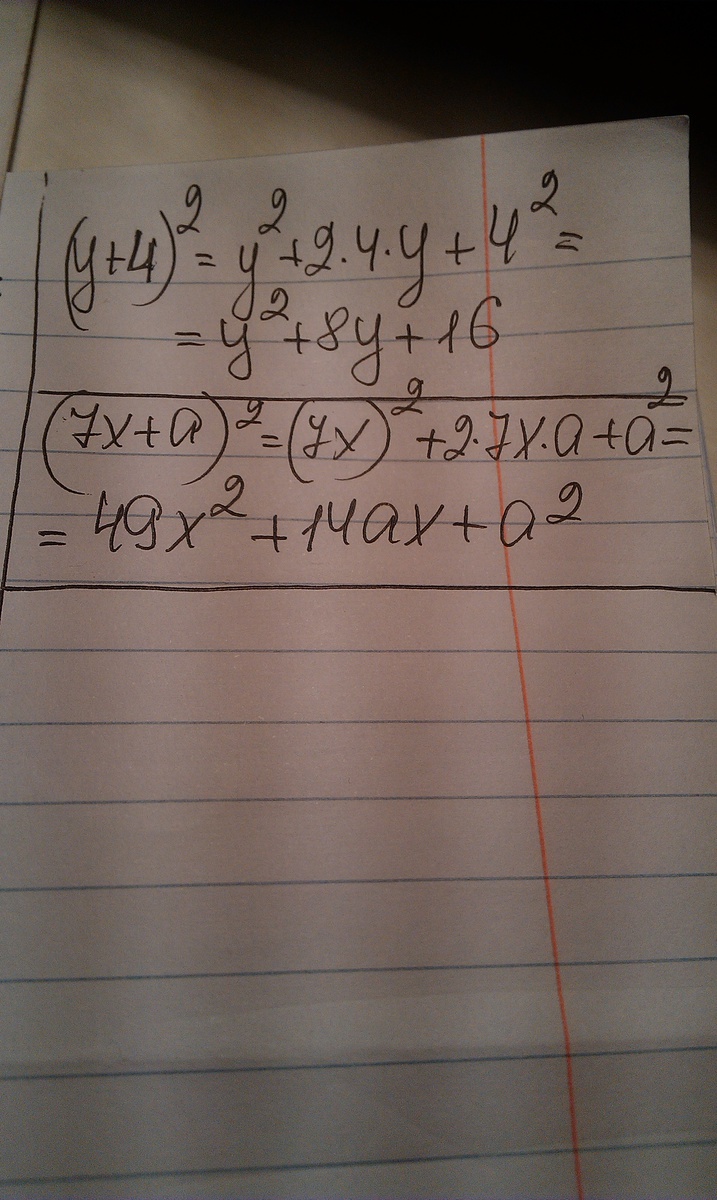 (y+4)² = y² + 2·4·y + 4² =
= y² + 8y + 16
(7x+a)² = (7x)² + 2·7x·a + a² =
= 49x² + 14ax + a²